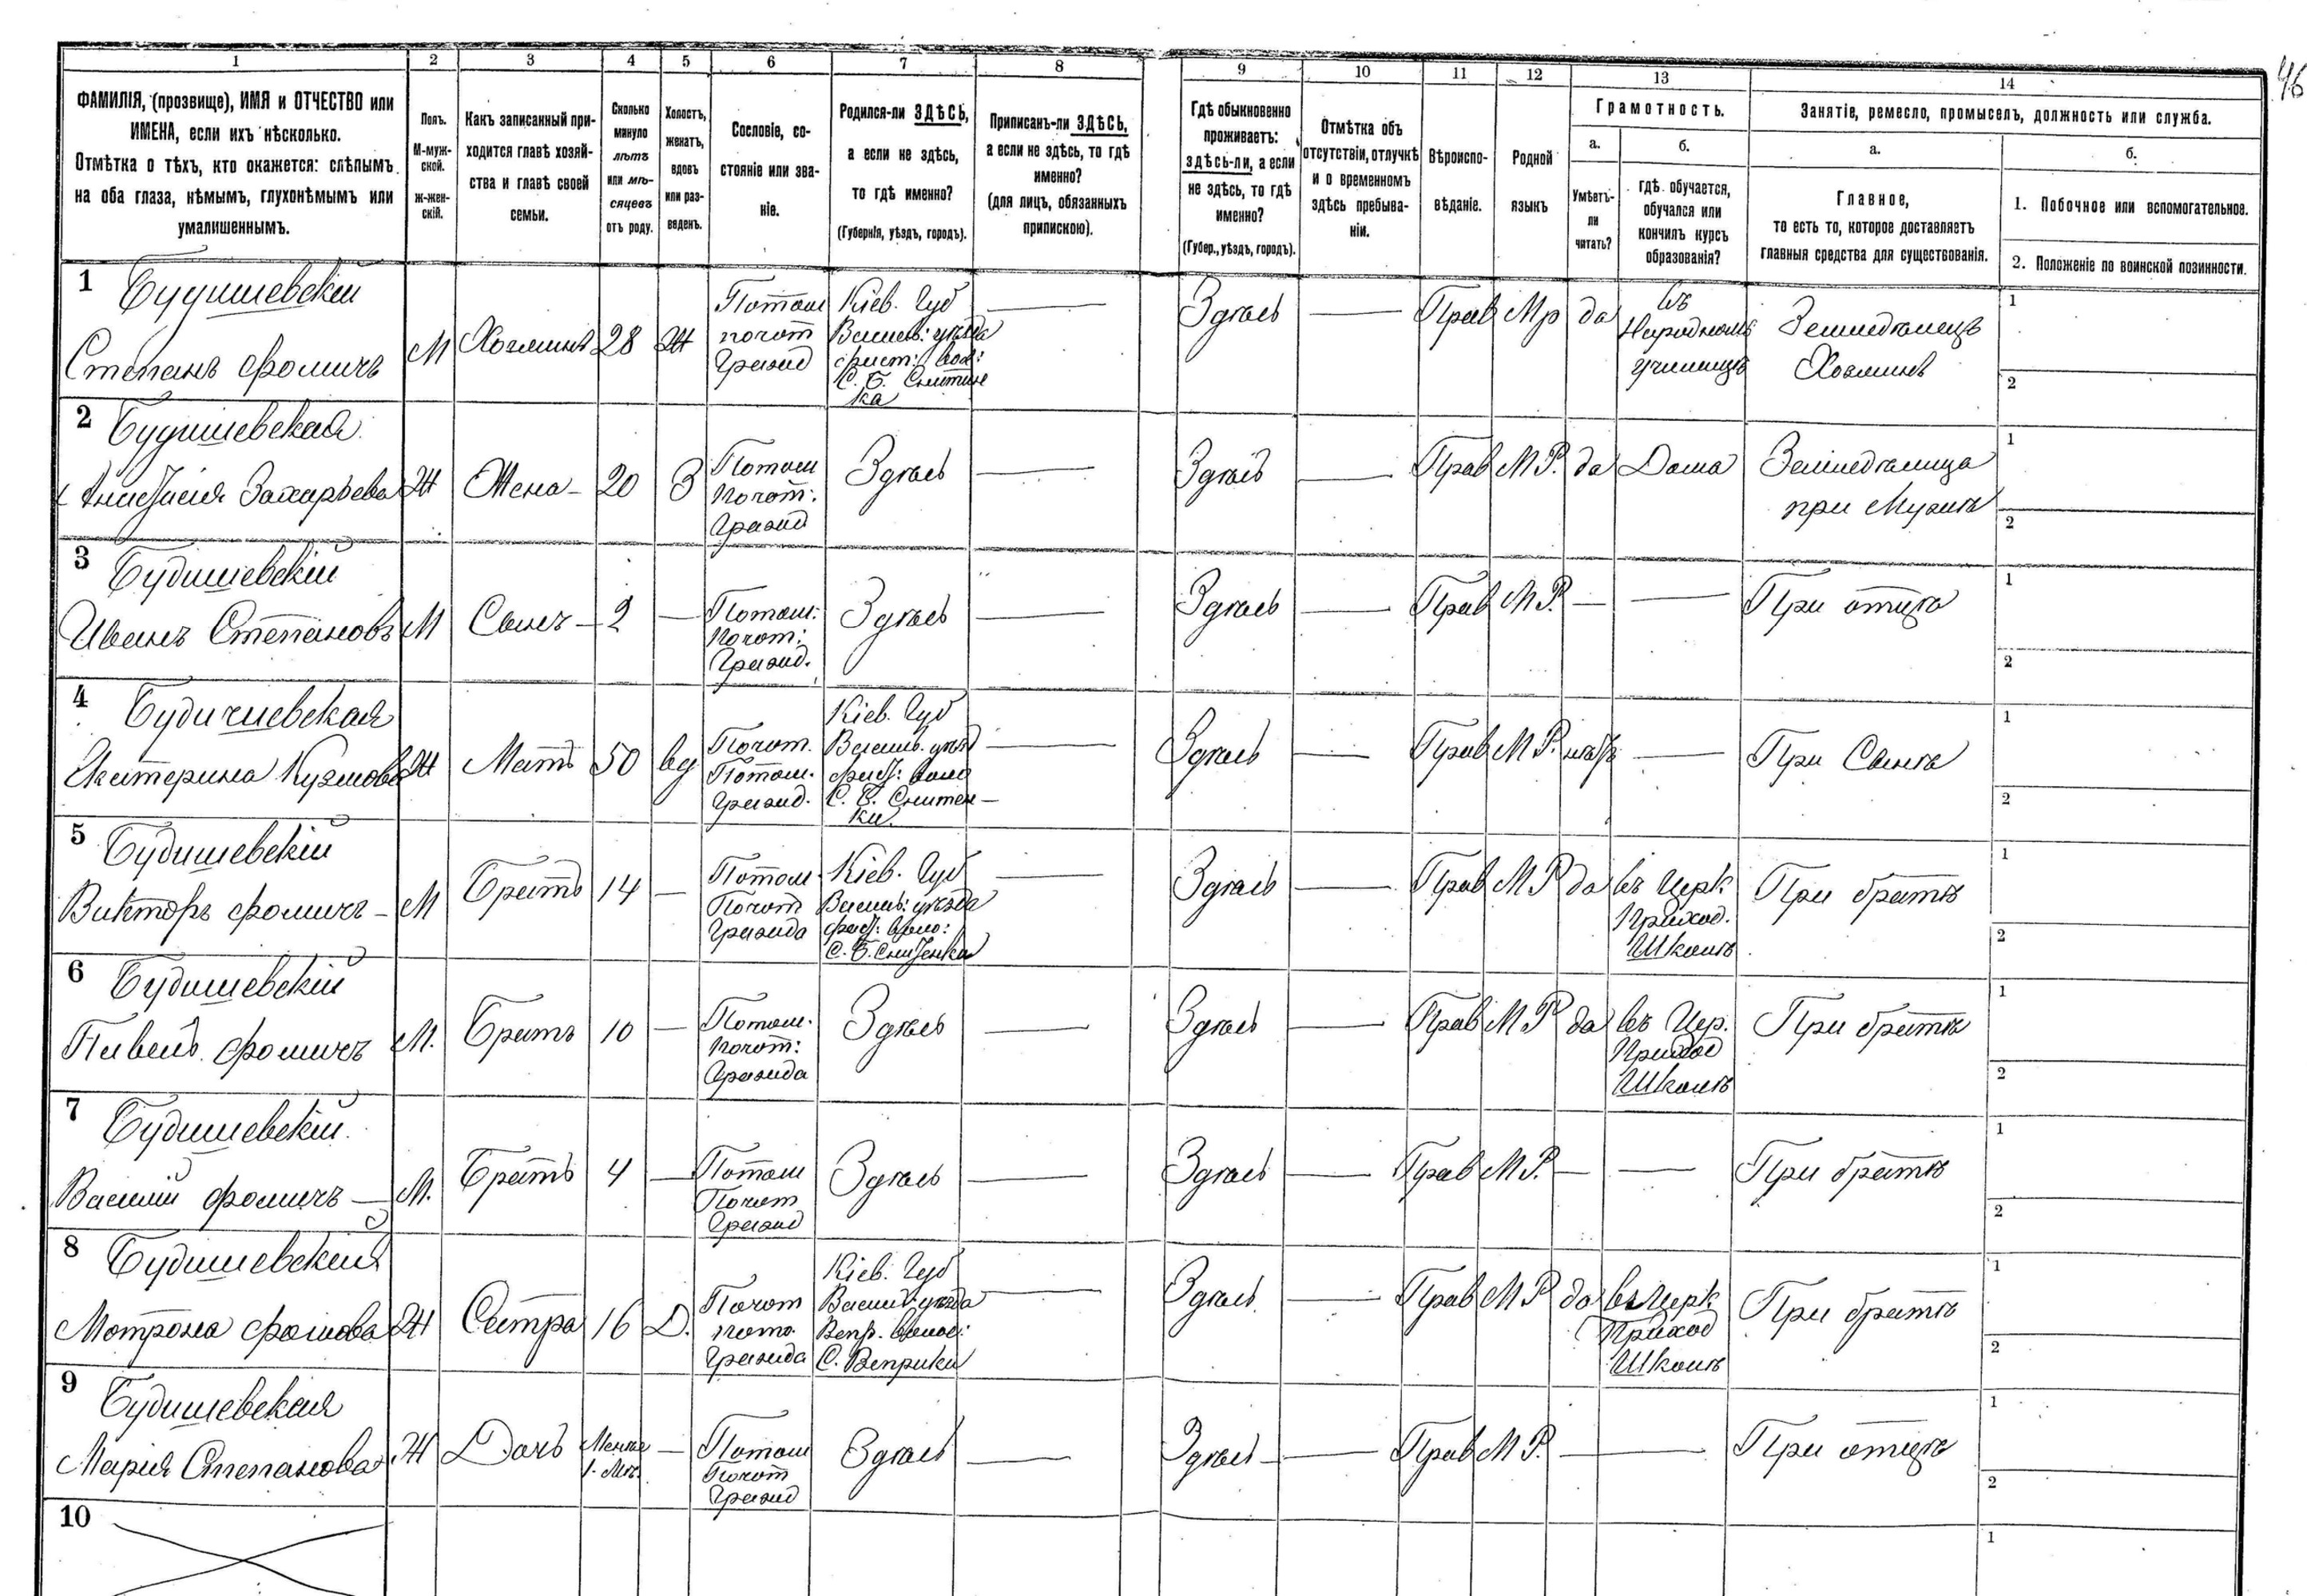 46
1 2 3 4 5 6 7 8 9 10 11 12 13 14
ФАМИЛІЯ, (прозвище), ИМЯ и ОТЧЕСТВО или
ИМЕНА, если ихъ нѣсколько.
Отмѣтка о тѣхъ, кто окажется: слѣпымъ
на оба глаза, нѣмымъ, глухонѣмымъ или
умалишеннымъ.
Полъ.
М-муж-
ской.
Ж-жен-
скій.
Какъ записанный при-
ходится главѣ хозяй-
ства и главѣ своей
семьи.
Сколько
минуло
лѣтъ
или мѣ-
сяцевъ
отъ роду.
Холостъ,
женатъ,
вдовъ
или раз-
веденъ.
Сословіе, со-
стояніе или зва-
ніе.
Родился-ли ЗДѢСЬ,
а если не здѣсь,
то гдѣ именно?
(Губернія, уѣздъ, городъ).
Приписанъ-ли ЗДѢСЬ,
а если не здѣсь, то гдѣ
именно?
(для лицъ, обязанныхъ
припискою).
Гдѣ обыкновенно
проживаетъ:
здѣсь-ли, а если
не здѣсь, то гдѣ
именно?
(Губер., уѣздъ, городъ).
Отмѣтка объ
отсутствіи, отлучкѣ
и о временномъ
здѣсь пребыва-
ніи.
Вѣроиспо-
вѣданіе.
Родной
языкъ
Грамотность.
а.
Умѣетъ-
ли
читать?
б.
гдѣ обучается,
обучался или
кончилъ курсъ
образованія?
Занятіе, ремесло, промыселъ, должность или служба.
а.
Главное,
то есть то, которое доставляетъ
главныя средства для существованія.
б.
1. Побочное или вспомогательное.
2. Положеніе по воинской повинности.
1 Будишевскій
Степанъ Фомичъ
М Хозяинъ 28 Ж
Потом
почот
гражд
Кіев. Губ
Васильв: уѣзда
Фаст: вол:
С. Б. Снитин
ка
Здѣсь Прав Мр да
въ
Народномъ
училищѣ
Земледѣлецъ
Хозяинъ
1
2
2 Будишевская
Анастасія Захарьева Ж Жена 20 З
Потом
почот:
гражд
Здѣсь Здѣсь Прав М Р. да Дома
Земледѣлица
при Мужѣ
1
2
3 Будишевскій
Иванъ Степановъ М Сынъ 2
Потом:
почот:
гражд.
Здѣсь Здѣсь Прав М Р. При отцѣ
1
2
4 Будишевская
Екатерина Кузмова Ж Мать 50 вд
Почот.
Потом.
гражд.
Кіев. Губ
Васильв. уѣзд
Фаст: воло
С. Б. Снитен-
ки
Здѣсь Прав М Р. При Сынѣ
1
2
5 Будишевскій
Викторъ Фомичъ М Братъ 14
Потом
Почот
гражда
Кіев. Губ
Васильв: уѣзда
Фаст: воло:
С. Б. Снитенка
Здѣсь Прав М Р да
въ Церк
Приход.
Школѣ
При братѣ
1
2
6 Будишевскій
Фомичъ М. Братъ 10
Потом.
почот:
гражда
Здѣсь Здѣсь Прав М Р да
въ Цер.
Приход
Школѣ
При братѣ
1
2
7 Будишевскій
Василій Фомичъ М. Братъ 4
Потом
Почот
гражд
Здѣсь Здѣсь Прав М Р. При братѣ
1
2
8 Будишевская
Мотрона Фомова Ж Сестра 16 Д.
Почот
пото.
гражда
Кіев. Губ
Васильв. уѣзда
Вепр. волос:
С. Веприки
Здѣсь Прав М Р да
въ Церк
Приход
Школѣ
При братѣ
1
2
9 Будишевская
Марія Степанова Ж Дочь
Менѣе
1. Мѣ.
Потом
Почот
гражд
Здѣсь Здѣсь Прав М Р. При отцѣ
1
2
10
1